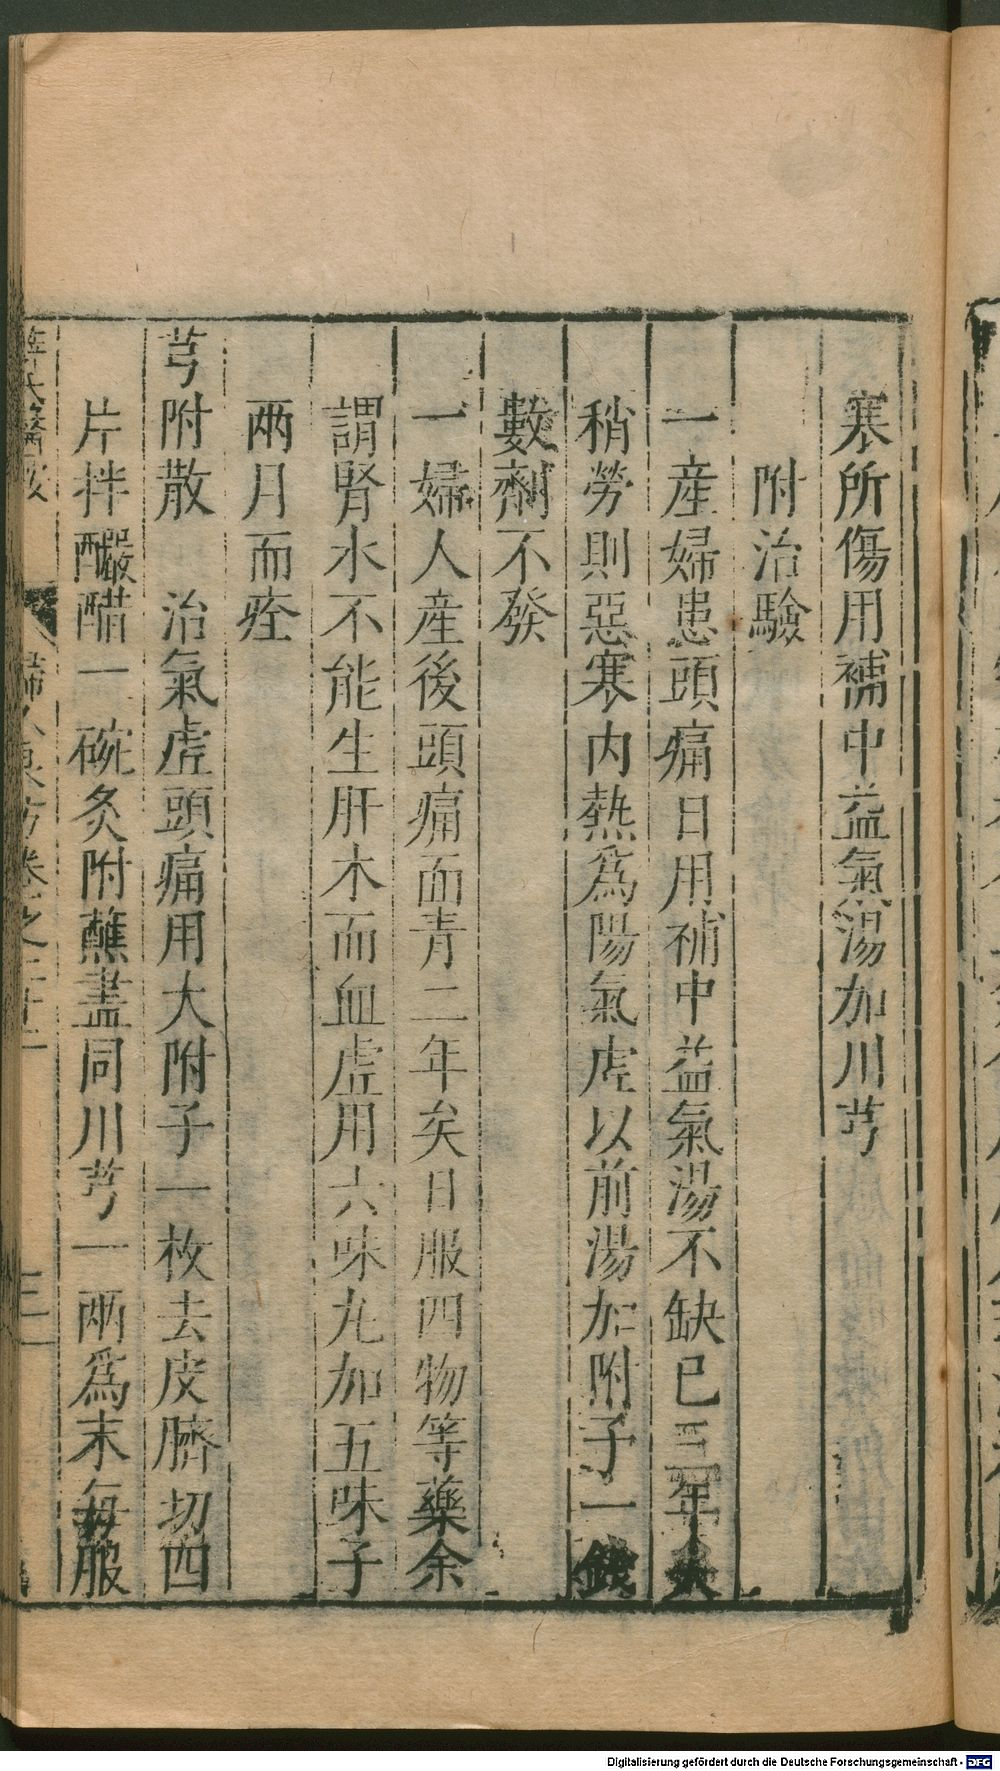 寒所傷用補中益氣湯加川芎
附治驗
一産婦患頭痛日用補中益氣湯不缺已三年
稍勞則惡寒内熱爲陽氣虚以前湯加附子一錢
數劑不發
一婦人産後頭痛面青二年矣日服四物等藥余
謂腎水不能生肝木而血虚用六味丸加五味子
兩月而痊
芎附散　治氣虚頭痛用大附子一枚去皮臍切四
片拌釅醋一碗炙附蘸盡同川芎一兩爲末每服
薛氏醫按　婦人良方卷之二十二　三
Digitalisierung gefördert durch die Deutsche Forschungsgemeinschaft - DFG